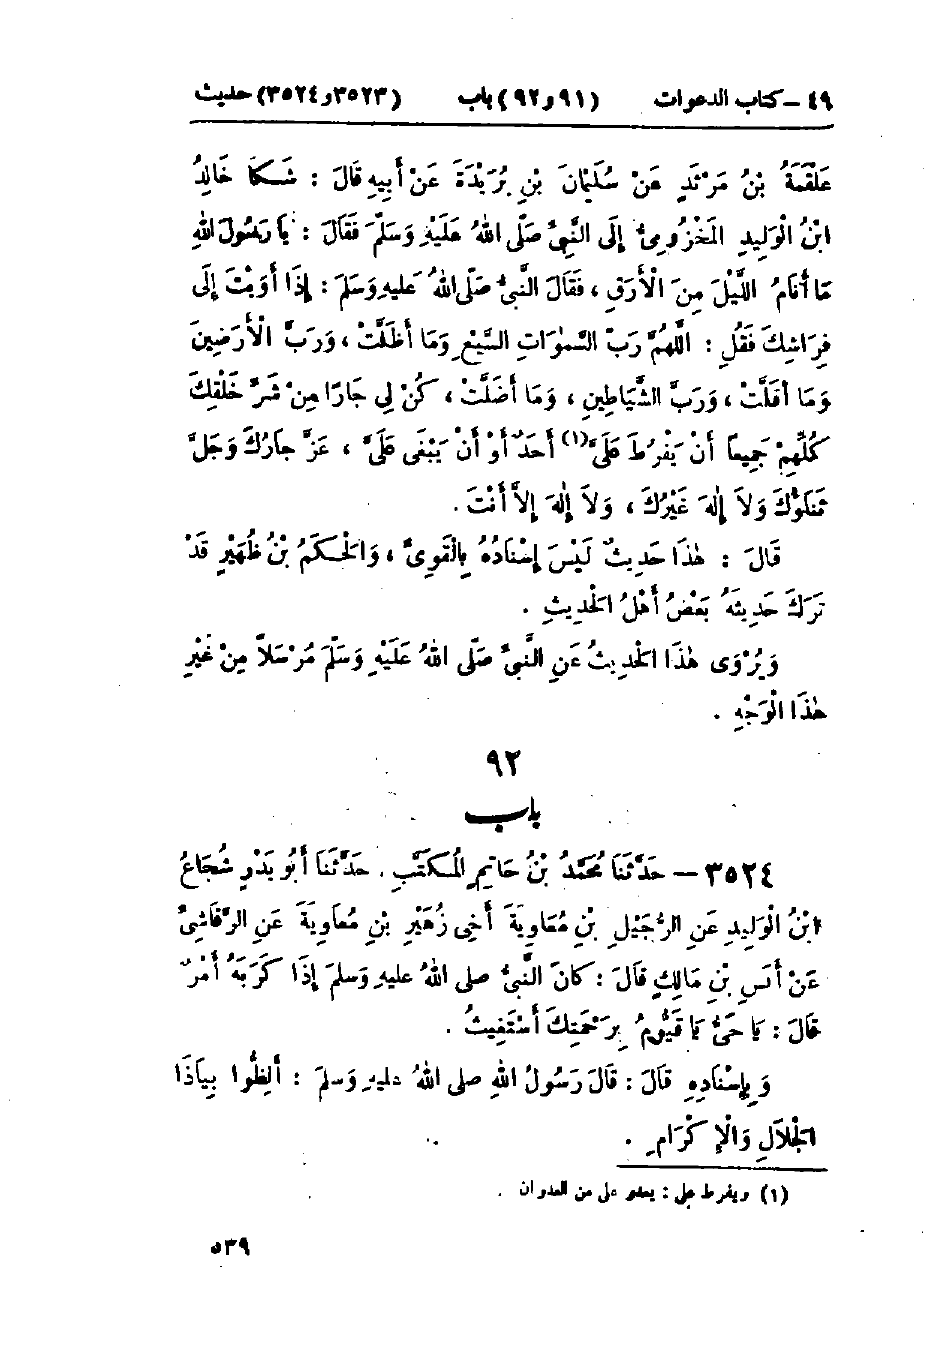 ٤٩ – كتاب الدعوات (٩١ و ٩٢) باب (٣٥٢٣ و ٣٥٢٤) حديث
عَلْقَمَةُ بْنُ مَرْثَدٍ عَنْ سُلَيْمَانَ بْنِ بُرَيْدَةَ عَنْ أَبِيهِ قَالَ : شَكَا خَالِدُ
ابْنُ الْوَلِيدِ الْمَخْزُومِىُّ إِلَى النَّبِىِّ صَلَّى اللهُ عَلَيْهِ وَسَلَّمَ فَقَالَ : يَا رَسُولَ اللهِ
مَا أَنَامُ اللَّيْلَ مِنَ الْأَرَقِ ، فَقَالَ النَّبِىُّ صَلَّى اللهُ عَليهِ وَسَلَّمَ : إِذَا أَوَيْتَ إِلَى
فِرَاشِكَ فَقُلِ : اللَّهُمَّ رَبَّ السَّمٰوَاتِ السَّبْعِ وَمَا أَظَلَّتْ ، وَرَبَّ الْأَرَضِينَ
وَمَا أَقَلَّتْ ، وَرَبَّ الشَّيَاطِينِ ، وَمَا أَضَلَّتْ ، كُنْ لِي جَارًا مِنْ شَرِّ خَلْقِكَ
كُلِّهِمْ جَمِيعًا أَنْ يَفْرُطَ عَلَىَّ (١) أَحَدٌ أَوْ أَنْ يَبْغَى عَلَىَّ ، عَزَّ جَارُكَ وَجَلَّ
ثَنَاؤُكَ وَلاَ إِلٰهَ غَيْرُكَ ، وَلاَ إِلٰهَ إِلاَّ أَنْتَ .
قَالَ : هٰذَا حَدِيثٌ لَيْسَ إِسْنَادُهُ بِالْقَوِىِّ ، وَالْحَكَمُ بْنُ ظُهَيْرٍ قَدْ
تَرَكَ حَدِيثَهُ بَعْضُ أَهْلِ الْحَدِيثِ .
وَيُرْوَى هٰذَا الْحَدِيثُ عَنِ النَّبِىِّ صَلَّى اللهُ عَلَيْهِ وَسَلَّمَ مُرْسَلاً مِنْ غَيْرِ
هٰذَا الْوَجْهِ .
٩٢
باب
٣٥٢٤ – حَدَّثَنَا مُحَمَّدُ بْنُ حَاتِمٍ الْمُكَتِّبِ . حَدَّثَنَا أَبُو بَدْرٍ شُجَاعُ
ابْنُ الْوَلِيدِ عَنِ الرُّحَيْلِ بْنِ مُعَاوِيَةَ أَخِى زُهَيْرِ بْنِ مُعَاوِيَةَ عَنِ الرَّقَاشِىِّ
عَنْ أَنَسِ بْنِ مَالِكٍ قَالَ : كَانَ النَّبِىُّ صلى اللهُ عليهِ وَسَلَّمَ إِذَا كَرَبَهُ أَمْرٌ
قَالَ : يَا حَىُّ يَا قَيُّومُ بِرَحْمَتِكَ أَسْتَغِيثُ .
وَبِإِسْنَادِهِ قَالَ : قَالَ رَسُولُ اللهِ صلى اللهُ عليهِ وَسَلَّمَ : أَلِظُّوا بِيَاذَا
الْجَلَالِ وَالْإِكْرَامِ .
(١) ويفرط على : يعدو على من العدوان .
٥٣٩